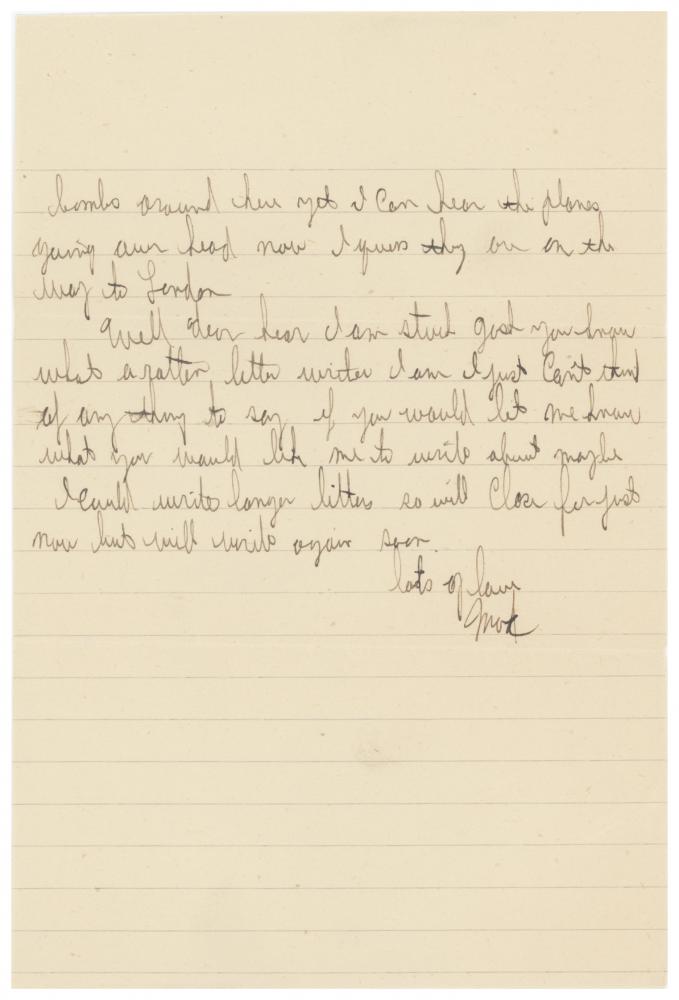 bombs around here yet I can hear the planes
going over head now I guess they are on the
way to London
Well dear hear I am stuck gosh you know
what a rotten letter writer I am I just can't think
of any thing to say if you would let me know
what you would like me to write about maybe
I could write longer letters so will close for just
now but will write again soon.
lots of love